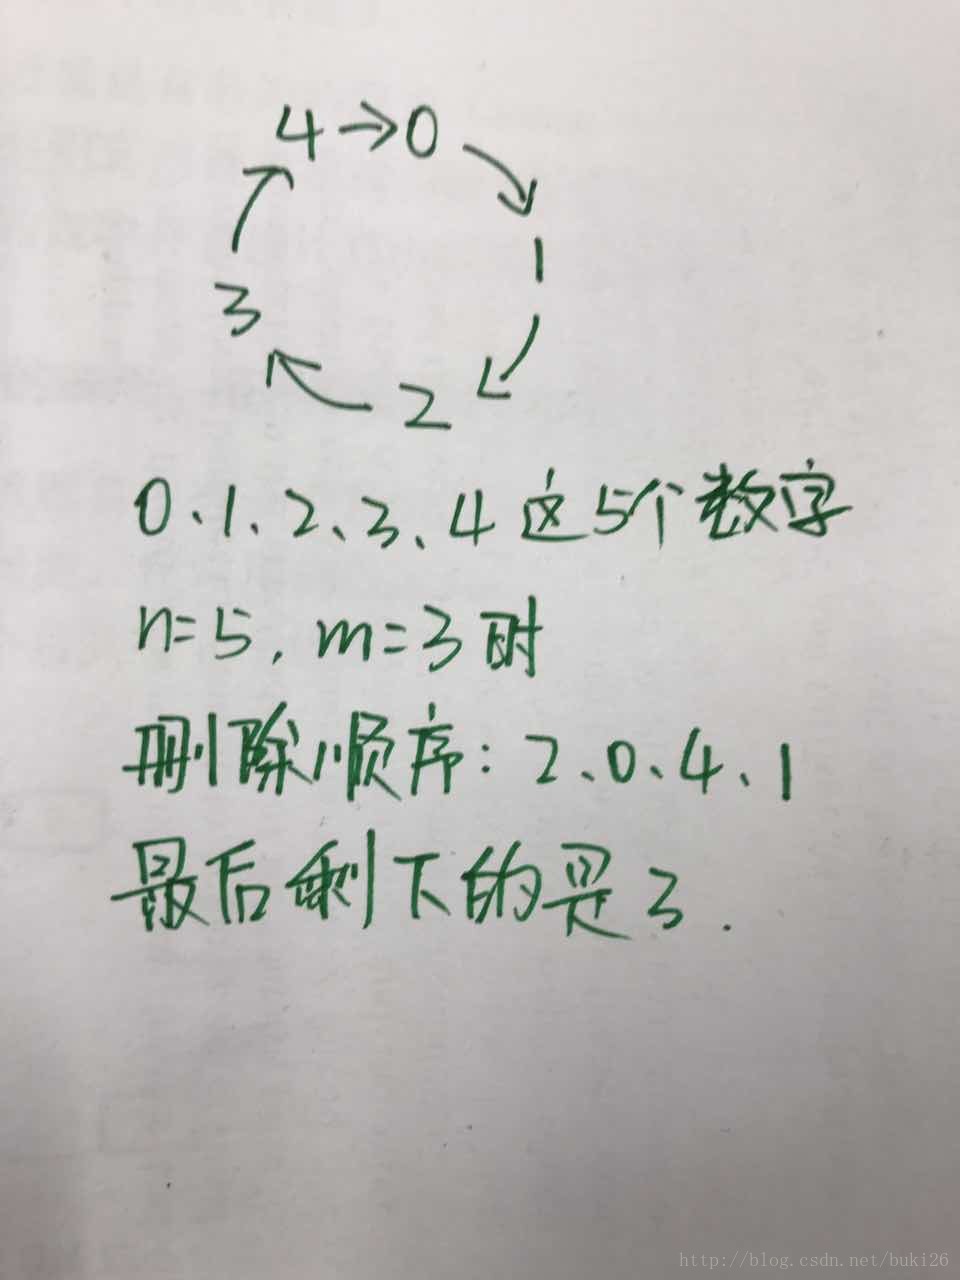 4→0
1
3
2
0、1、2、3、4这5个数字
n=5, m=3时
删除顺序:2、0、4、1
最后剩下的是3.
http://blog.csdn.net/buki26